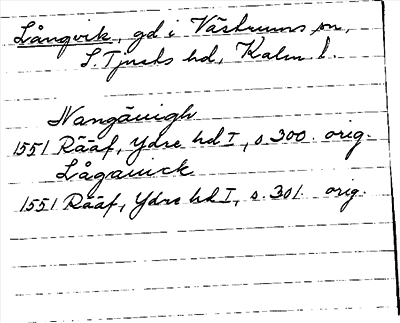 Långvik, gd i Västrums sn,
S. Tjusts hd, Kalm. l.
Nangäuigh
1551 Rääf, Ydre hd I, s. 300. orig.
Lågauick
1551 Rääf, Ydre hd I, s. 301. orig.